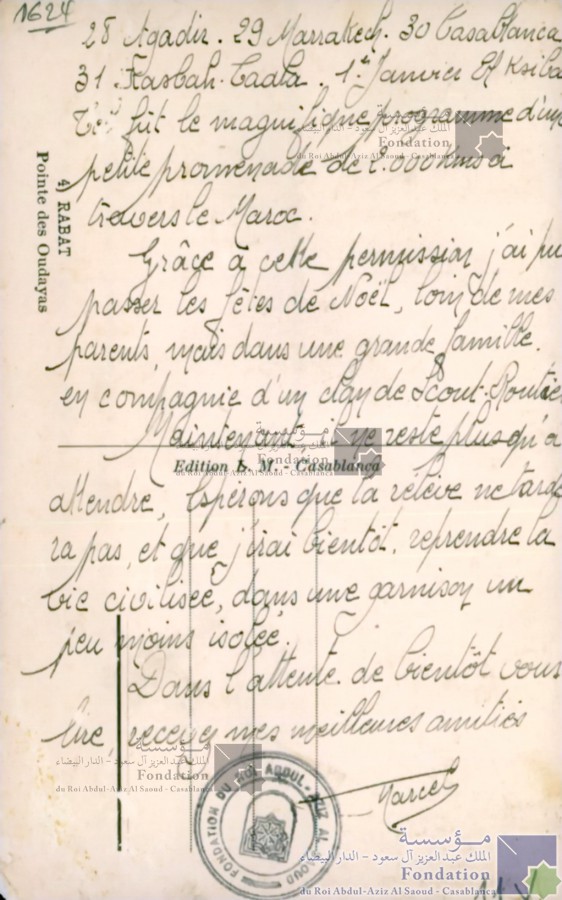 1624
28 Agadir. 29 Marrakech. 30 Casablanca
31 Kasbah-Tadla. 1er Janvier El Ksiba
fut le magnifique programme d'une
petite promenade de 2.000 kms à
travers le Maroc.
Grâce à cette permission j'ai pu
passer les fêtes de Noël, loin de mes
parents, mais dans une grande famille.
en compagnie d'un clan de Scout-Routier
Maintenant, il ne reste plus qu'à
attendre, Espérons que la relève ne tarde
ra pas, et que j'irai bientôt, reprendre la
vie civilisée, dans une garnison un
peu moins isolée.
Dans l'attente de bientôt vous
lire, recevez mes meilleures amitiés
Marcel
4) RABAT
Pointe des Oudayas
Edition L. M. - Casablanca
FONDATION DU ROI ABDUL-AZIZ AL SAOUD
مؤسسة
الملك عبد العزيز آل سعود - الدار البيضاء
Fondation
du Roi Abdul-Aziz Al Saoud - Casablanca
مؤسسة
Fondation
du Roi Abdul-Aziz Al Saoud - Casablanca
مؤسسة
الملك عبد العزيز آل سعود - الدار البيضاء
Fondation
du Roi Abdul-Aziz Al Saoud - Casablanca
مؤسسة
الملك عبد العزيز آل سعود - الدار البيضاء
Fondation
du Roi Abdul-Aziz Al Saoud - Casablanca